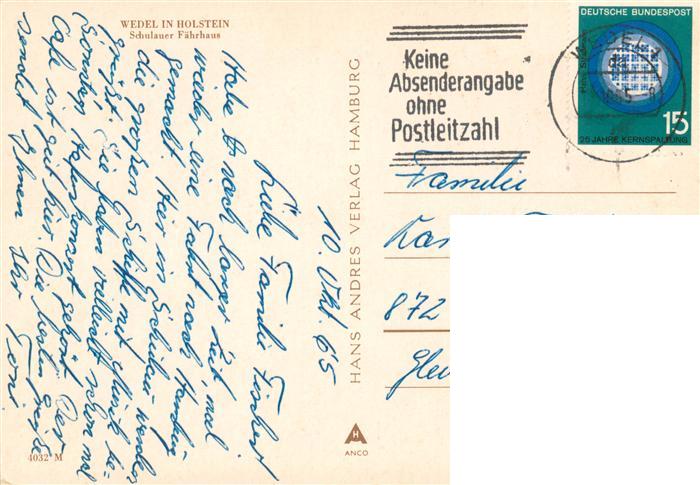 WEDEL IN HOLSTEIN
Schulauer Fährhaus
10. Okt. 65
Liebe Familie Fischer!
Habe b nach langer Zeit mal
wieder eine Fahrt nach Hamburg
gemacht. Hier in Schulau werden
die großen Schiffe mit Musik be-
grüßt. Sie haben vielleicht schon mal
Sonntag Hafenkonzert gehört. Der
Café ist gut hier. Die besten Grüße
sendet Ihnen Ihr
4032 M
HANS ANDRES VERLAG HAMBURG
H
ANCO
Keine
Absenderangabe
ohne
Postleitzahl
WEDEL
DEUTSCHE BUNDESPOST
15
25 JAHRE KERNSPALTUNG
Familie
872